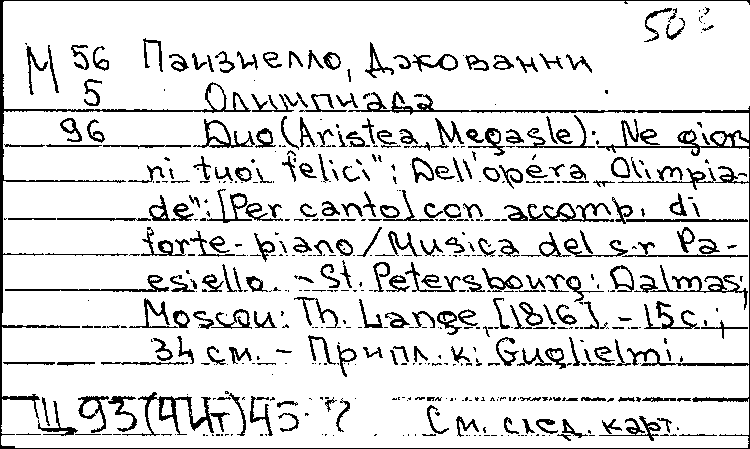 М 56 Паизиелло, Джованни
5 Олимпиада
96 Duo (Aristea, Megasle): „Ne gior-
ni tuoi felici"; Dell'opéra „Olimpia-
de": [Per canto] con accomp. di
forte-piano / Musica del s-r Pa-
esiello. - St. Petersbourg: Dalmas;
Moscou: Th. Lange, [1816]. - 15 с.;
34 см. - Припл. к: Guglielmi.
Щ 93(4Ит)45-7 См. след. карт.